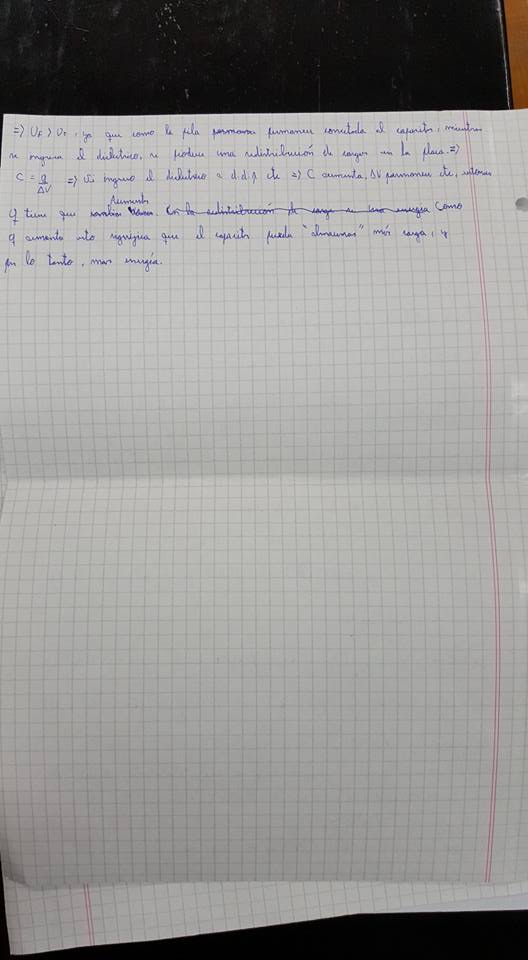 => U_F > U_o, ya que como la pila permanece conectada al capacitor, mientras
se ingresa el dieléctrico, se produce una redistribución de cargas en la placa =>
C = q/ΔV => Si ingreso el dieléctrico a d.d.p cte => C aumenta, ΔV permanece cte, entonces
q tiene que aumentar Con la redistribución de carga Como
q aumenta esto significa que el capacitor puede "almacenar" más carga, y
por lo tanto, mas energía.